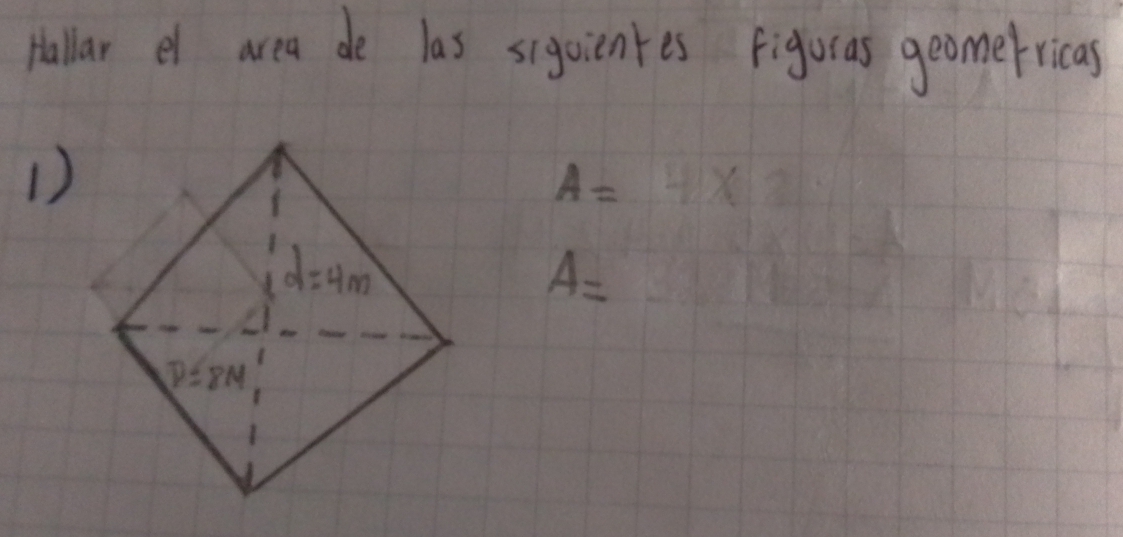 Hallar el area de las siguientes figuras geometricas
1)
A= 4 X
d=4m
A=
D=8M